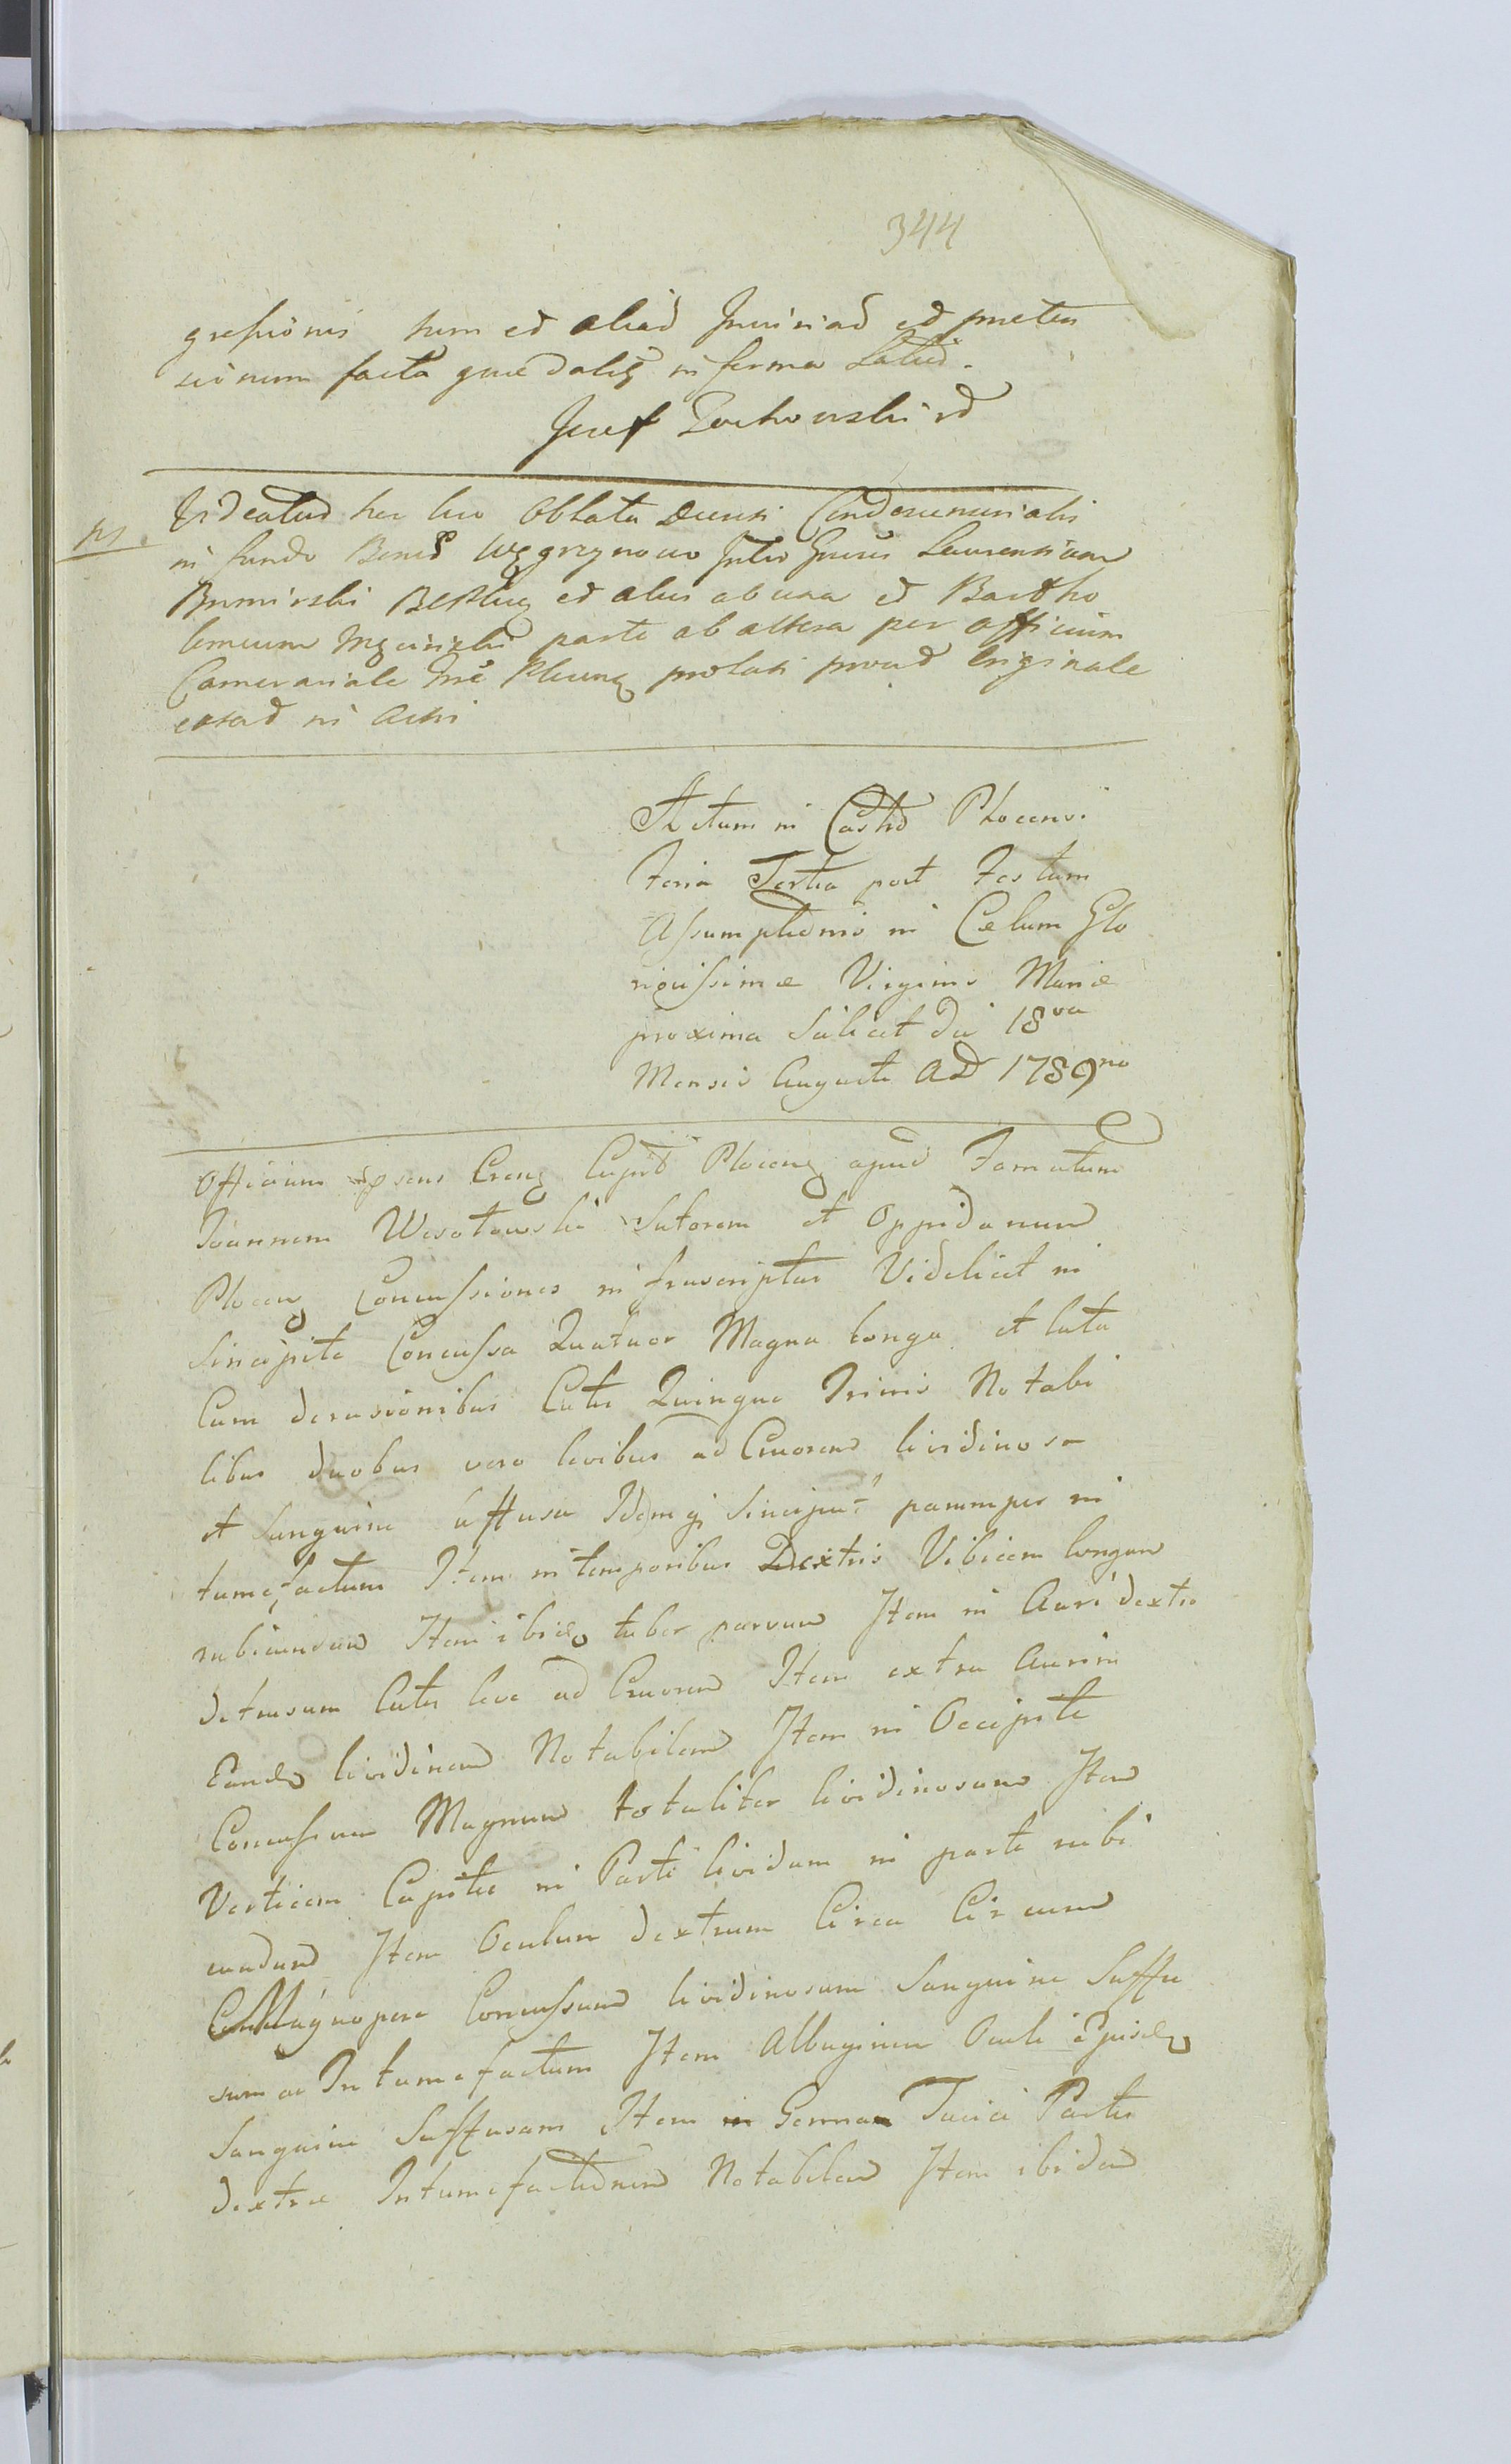 344
gressionis hum ed aliad Inuiriad ed preten
sionum facta quæ dalis in forma Salud.
Josef Zochowski rd
Videatud hec luo Oblata Decreti Condescensionalis
NB.
in fundo Bonod Węgrzynowo Inter Gnosos Laurentium
et alias ab una ed Bartho
lomeum parte ab altera per officium
Camerariale Træ Plocens prolati proud Originale
extad in Actis
Actum in Castro Plocensi
Feria Tertia post Festum
Assumptionis in Cœlum Glo
riosissimæ Virginis Mariæ
proxima Scilicet Die 18va
Mensis Augusti AD 1789no
Officium psens Crens Captle Plocens apud Famatum
Joannem Wesołowski Sutorem et Oppidanum
Plocens Concussiones infrascriptas Videlicet in
Sincipite Concussa Quatuor Magna longa et lata
Cum derasionibus Cutis Quinque Trinis Notabi
libus duobus vero levibus ad Cruorem lividinosa
et Sanguine suffusa Idemq Sinciput parumper in
tumefactum Item in temporibus Dextris Vibicem longam
rubicundam Item ibidem tuber parvum Item in Auri dextro
detrusum Cutis leve ad Cruorem Item extra Aurim
Eandem lividinem Notabilem Item in Occipite
Concussum Magnum totaliter lividinosum Item
Verticem Capitis in Parte lividum in parte rubi
cundum Item Oculum dextrum Circa Circum
Magnopere Concussum lividinosum Sanguine Suffu
sum ac Intumefactum Item Albuginem Oculi Ejusdem
Sanguine Suffusam Item in Genna Faciei Partis
dextræ Intumefactionem Notabilem Item ibidem